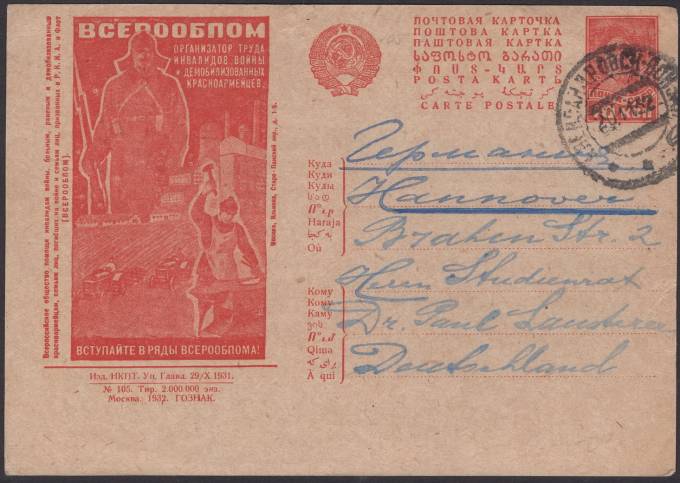 ВСЕРООБПОМ
ОРГАНИЗАТОР ТРУДА
ИНВАЛИДОВ ВОЙНЫ
И ДЕМОБИЛИЗОВАННЫХ
КРАСНОАРМЕЙЦЕВ.
Всероссийское общество помощи инвалидам войны, больным, раненым и демобилизованным
красноармейцам, семьям лиц, погибших на войне и семьям лиц, призванных в Р. К. К. А. и Флот
(ВСЕРООБПОМ).
Москва, Ильинка, Старо-Панский пер., д. 1-5.
ВСТУПАЙТЕ В РЯДЫ ВСЕРООБПОМА!
Изд. НКПТ. Уп. Главл. 29/X 1931.
№ 105. Тир. 2.000.000 экз.
Москва. 1932. ГОЗНАК.
ПОЧТОВАЯ КАРТОЧКА
ПОШТОВА КАРТКА
ПАШТОВАЯ КАРТКА
ᲡᲐᲤᲝᲡᲢᲝ ᲑᲐᲠᲐᲗᲘ
ՓՈՍՏ-ՔԱՐՏ
POSTA KARTЬ
CARTE POSTALE
Куда
Куди
Куды
სად
Ո՞ւր
Haraja
Où
Кому
Кому
Каму
ვის
Ո՞ւմ
Qimə
À qui
Германия
Hannover
Braten Str. 2
Herrn Studienrat
Dr. Paul
Deutschland